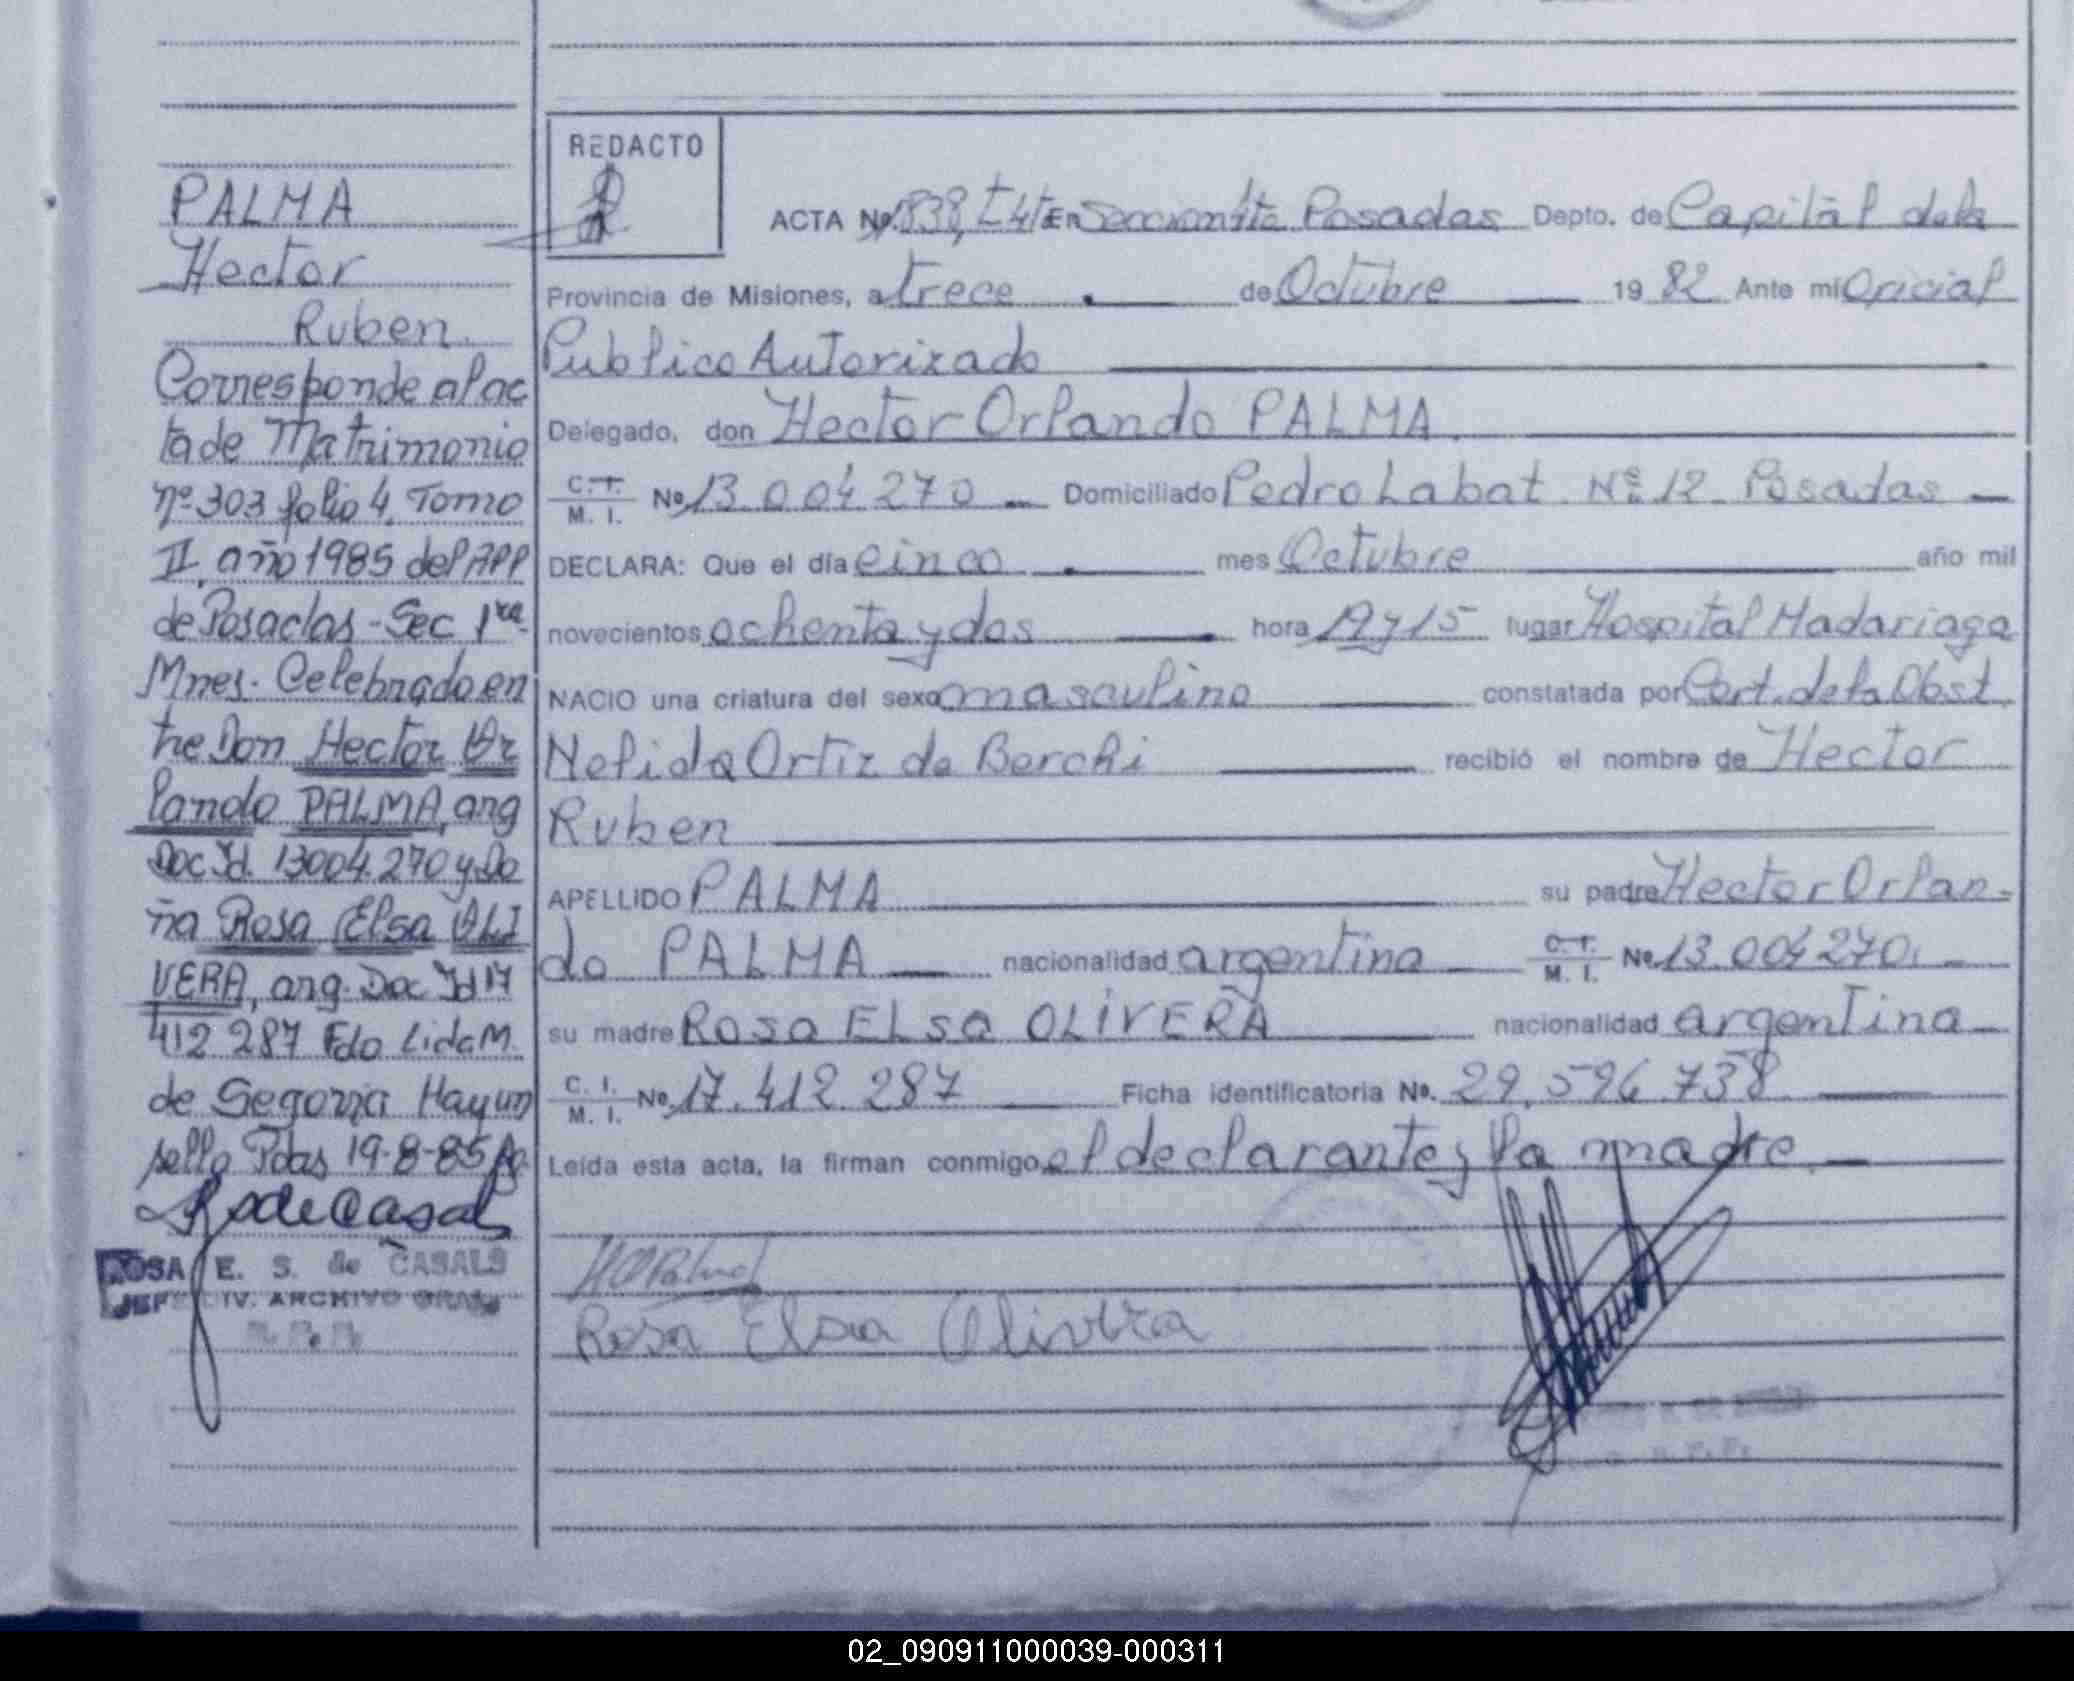 PALMA
Hector
Ruben.
Corresponde al ac
ta de Matrimonio
nº 303 folio 4. Tomo
II, año 1985 del APP
de Posadas - Sec 1ra
Mnes. Celebrado en
tre Don Hector Or
lando PALMA, arg
Doc Id. 13004.270 y Do
ña Rosa Elsa OLI
VERA, arg. Doc Id 17
412 287 Fdo Lida M.
de Segovia Hay un
sello Pdas 19-8-85
R de Casals
ROSA E. S. de CASALS
JEF DIV. ARCHIVO GRAL
REDACTO
ACTA No. 838, En Posadas Depto. de Capital de la
Provincia de Misiones, a trece de Octubre 19 82 Ante mi Oficial
Publico Autorizado
Delegado, don Hector Orlando PALMA.
C.T. M. I. No. 13.004.270 Domiciliado Pedro Labat Nº 12 Posadas
DECLARA: Que el día cinco mes Octubre año mil
novecientos ochenta y dos hora 19 y 15 lugar Hospital Madariaga
NACIO una criatura del sexo masculino constatada por Cert. de la Obst
Nelida Ortiz de Berchi recibió el nombre de Hector
Ruben
APELLIDO PALMA su padre Hector Orlan-
do PALMA nacionalidad argentina C.T. M. I. No. 13.004.270.
su madre Rosa ELsa OLIVERA nacionalidad argentina
C. I. M. I. No. 17.412.287 Ficha identificatoria No. 29.596.738
Leída esta acta, la firman conmigo el declarante y la madre.
HOPalma
Rosa Elsa Olivera
02_090911000039-000311